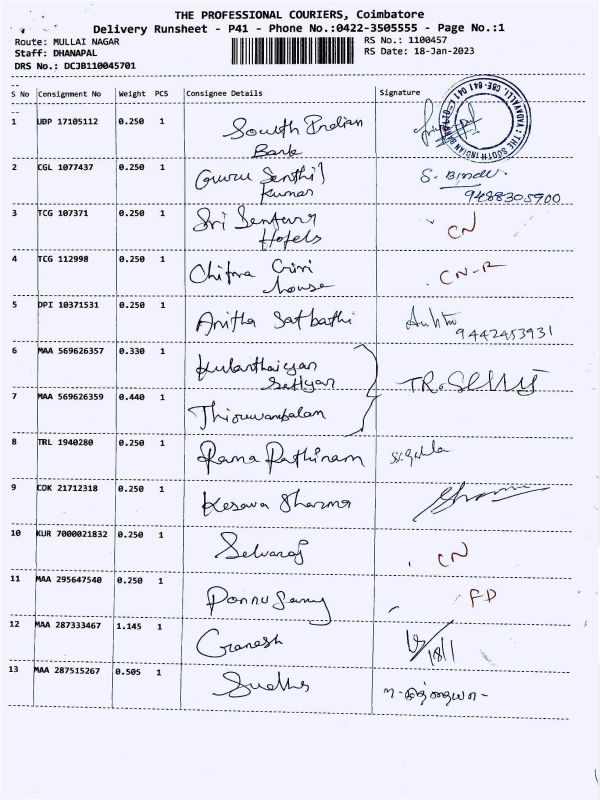 THE PROFESSIONAL COURIERS, Coimbatore
Delivery Runsheet - P41 - Phone No.:0422-3505555 - Page No.:1
Route: MULLAI NAGAR RS No.: 1100457
Staff: DHANAPAL RS Date: 18-Jan-2023
DRS No.: DCJB110045701
S No Consignment No Weight PCS Consignee Details Signature
1 UBP 17105112 0.250 1 South Indian
Bank
2 CGL 1077437 0.250 1 Guru Senthil
Kumar
9488305900
3 TCG 107371 0.250 1 Sri Sentura
Hotels
CN
4 TCG 112998 0.250 1 Chitra Giri
house
CN-R
5 DPI 10371531 0.250 1 Anitha Satbathi
9442453931
6 MAA 569626357 0.330 1 Kulanthaiyan
Setiyar
7 MAA 569626359 0.440 1 Thiruvambalam
8 TRL 1940280 0.250 1 Rama Rathinam
9 COK 21712318 0.250 1 Kesava Sharma
10 KUR 7000021832 0.250 1 Selvaraj CN
11 MAA 295647540 0.250 1 Ponnusamy FD
12 MAA 287333467 1.145 1 Ganesh 18/1
13 MAA 287515267 0.505 1 Sudha